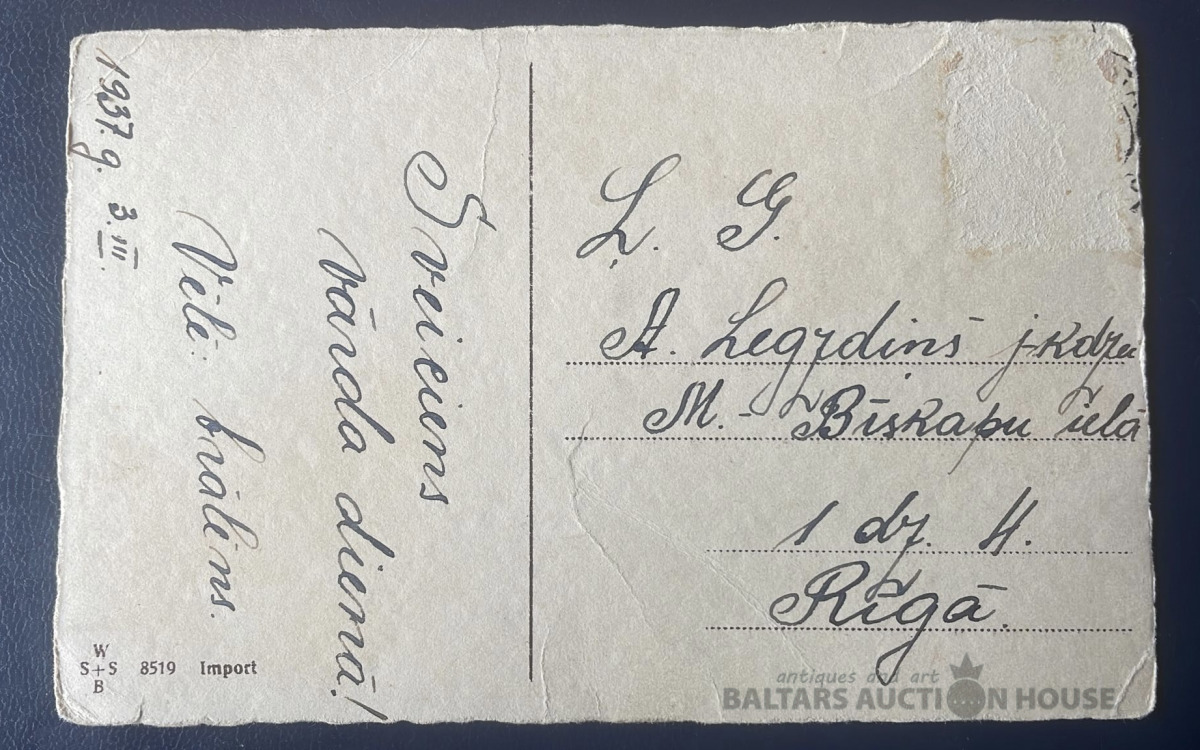 1937. g. 3. III.
Sveiciens
vārda dienā!
Vēlē: brālēns.
L. G.
A. Legzdiņš j-kdze
M. - Bīskapu ielā
1 dz. 4.
Rīgā.
W
S+S 8519 Import
B
antiques and art
BALTARS AUCTION HOUSE